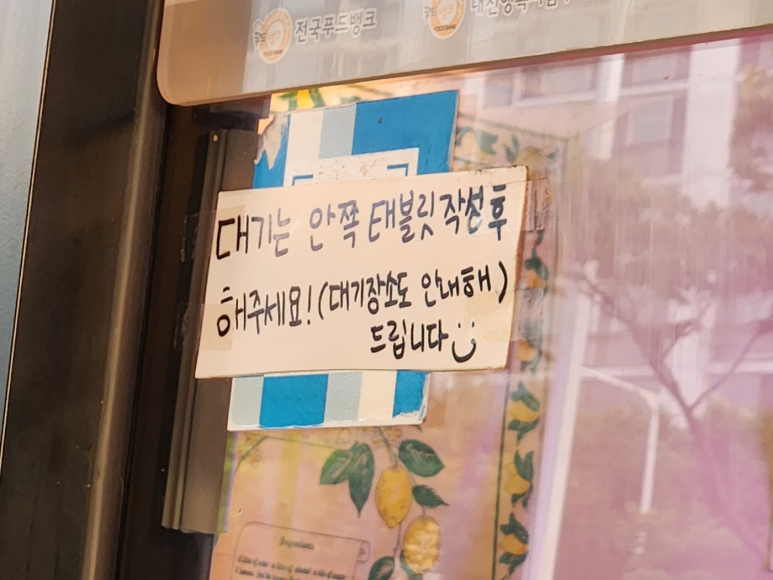 전국푸드뱅크
대기는 안쪽 태블릿 작성 후
해주세요! (대기장소도 안내해)
드립니다
Ingredients